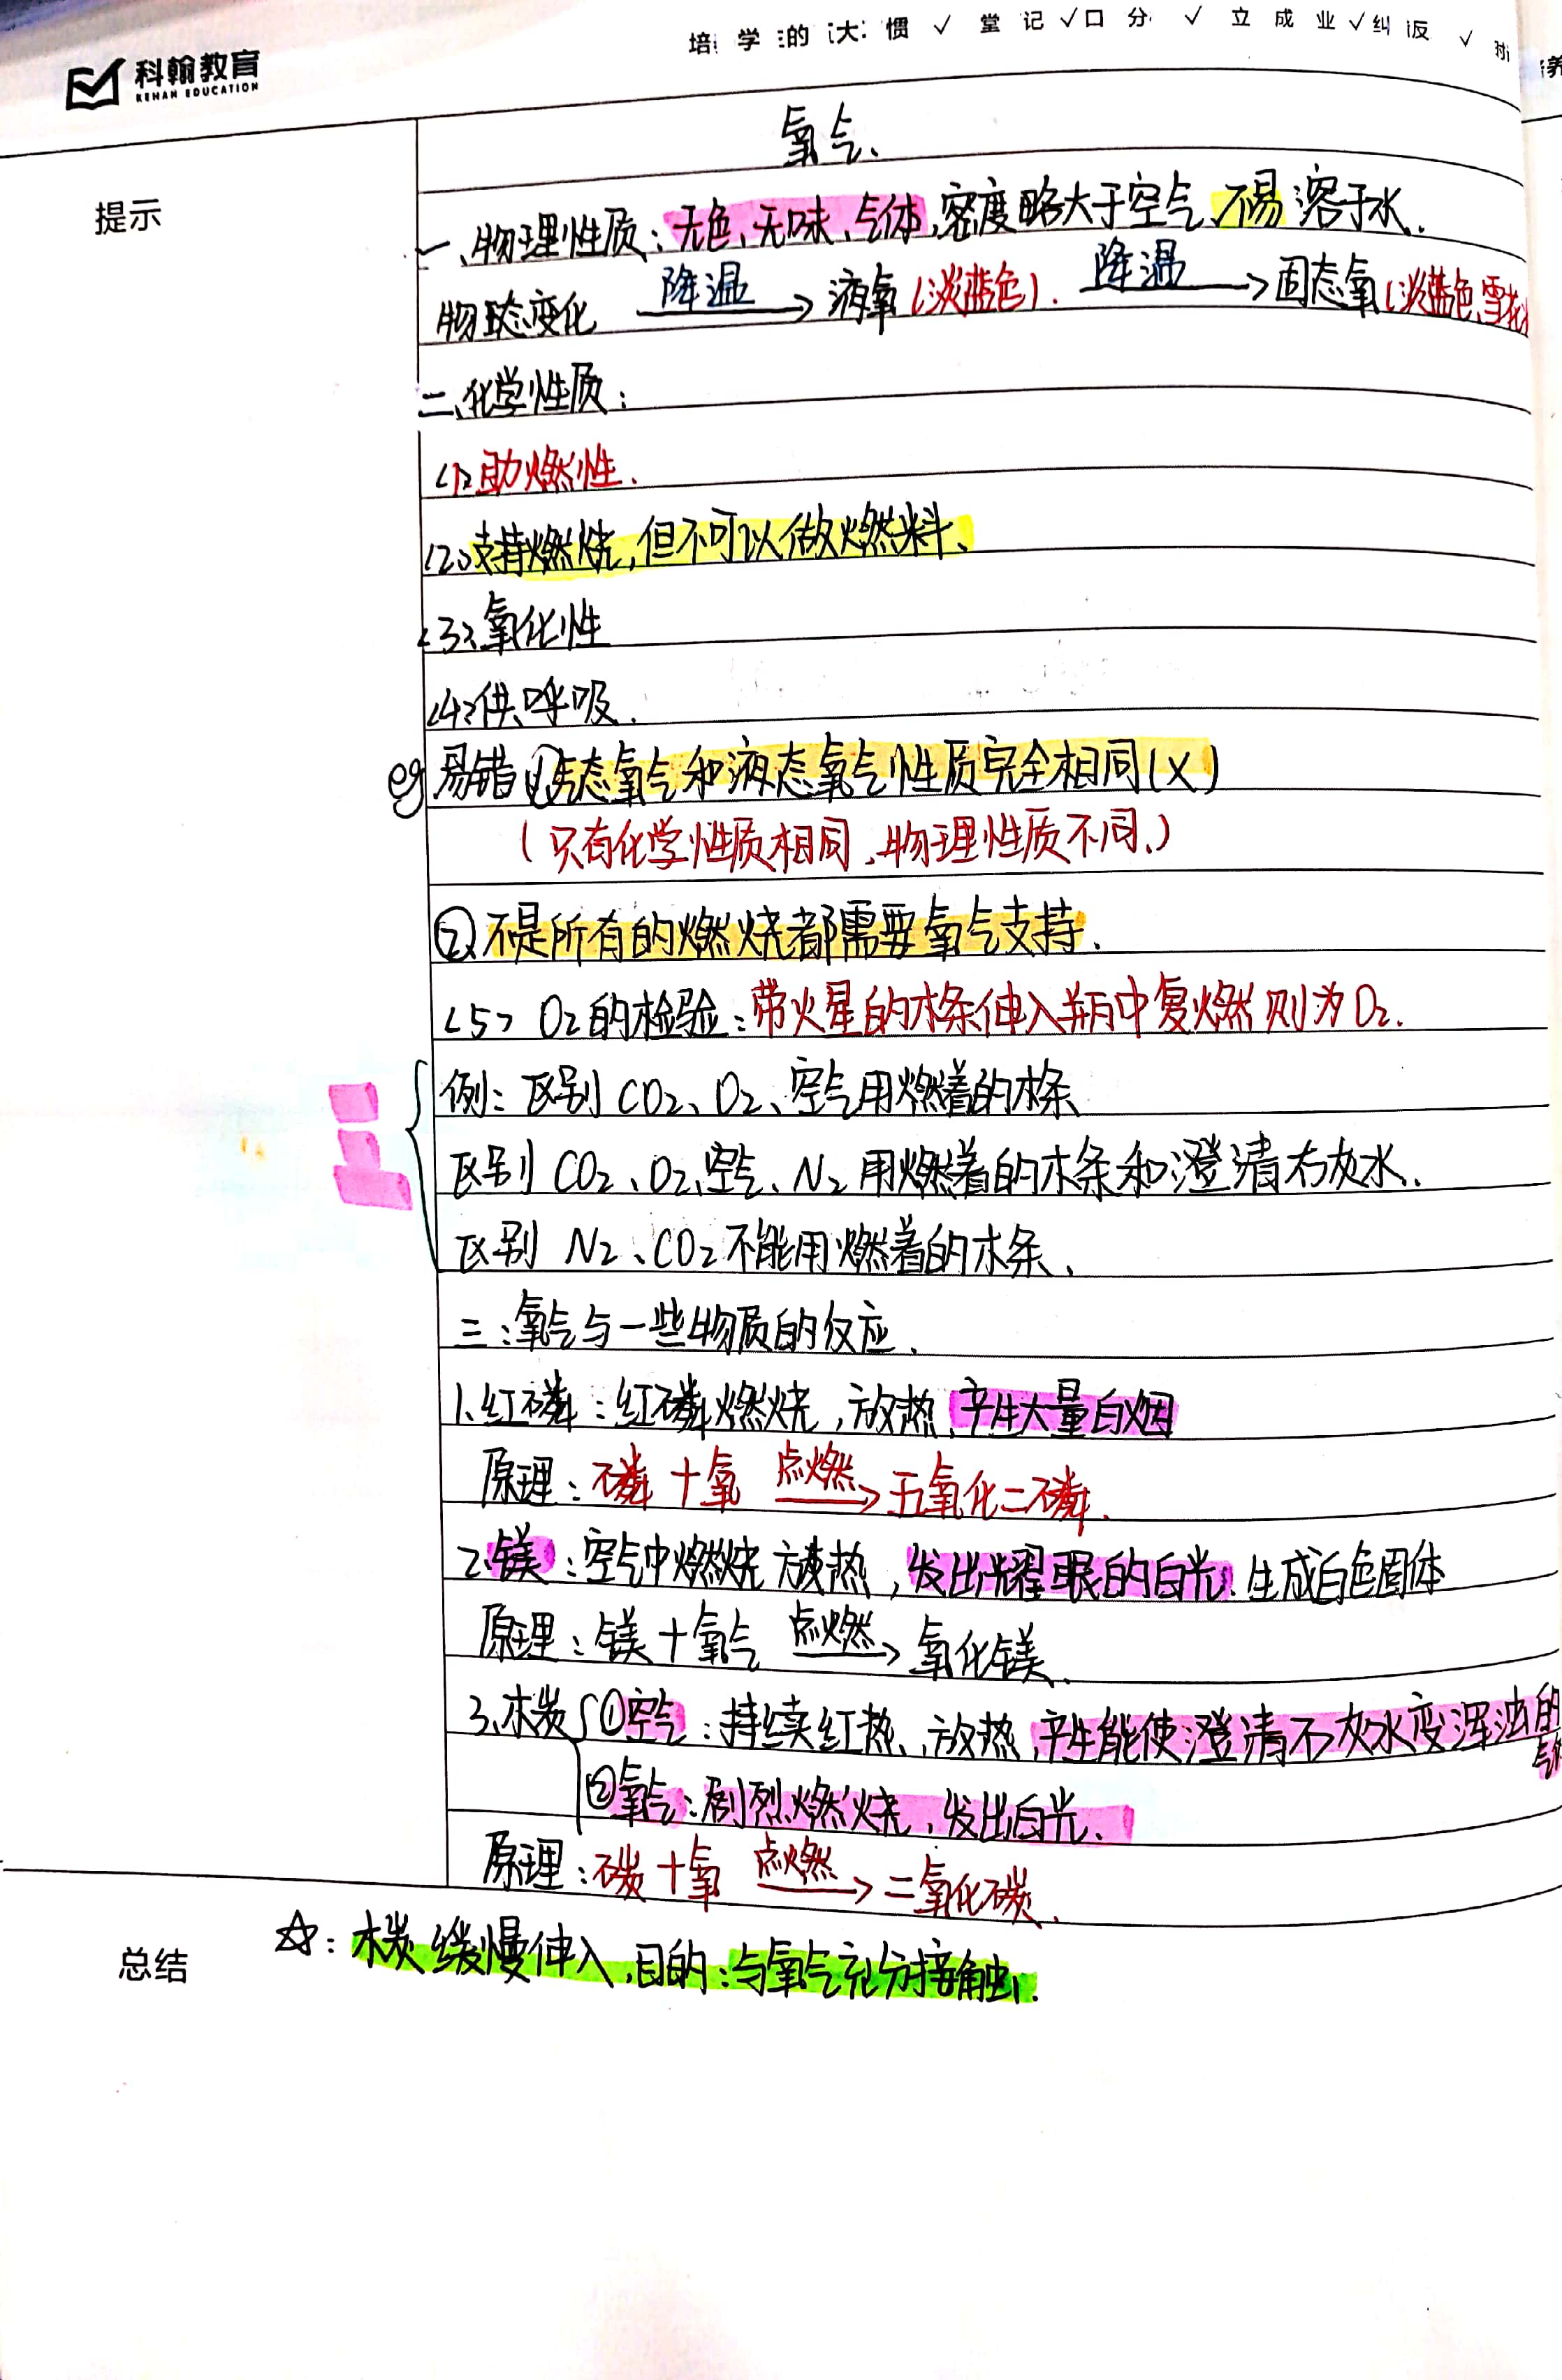 科翰教育
KEHAN EDUCATION
提示
氧气.
一、物理性质：无色、无味、气体,密度略大于空气、不易溶于水.
物态变化 降温→ 液氧(淡蓝色). 降温→固态氧(淡蓝色、雪花
二、化学性质：
<1>助燃性.
<2>支持燃烧,但不可以做燃料、
<3>、氧化性
<4>供呼吸.
eg 易错①气态氧气和液态氧气性质完全相同(×)
(只有化学性质相同、物理性质不同、)
②、不是所有的燃烧都需要氧气支持.
<5> O₂的检验：带火星的木条伸入瓶中复燃则为O₂.
例：区别CO₂、O₂、空气用燃着的木条
区别CO₂、O₂、空气、N₂用燃着的木条和澄清石灰水.
区别 N₂、CO₂不能用燃着的木条、
三：氧气与一些物质的反应、
1、红磷：红磷燃烧,放热、产生大量白烟
原理：磷+氧 点燃→五氧化二磷、
2、镁：空气中燃烧 放热,发出耀眼的白光、生成白色固体
原理：镁+氧气 点燃→ 氧化镁、
3、木炭 ①空气：持续红热、放热、产生能使澄清石灰水变浑浊的
气体
②氧气：剧烈燃烧、发出白光、
原理：碳+氧 点燃→二氧化碳、
总结
☆：木炭缓慢伸入,目的：与氧气充分接触.